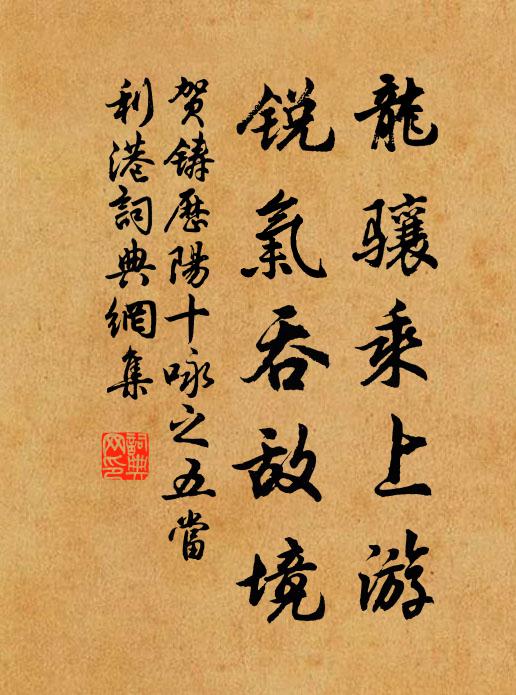 龍驤乘上游
銳氣吞敵境
賀鑄歷陽十咏之五當
利港詞典網集
詞典
网印